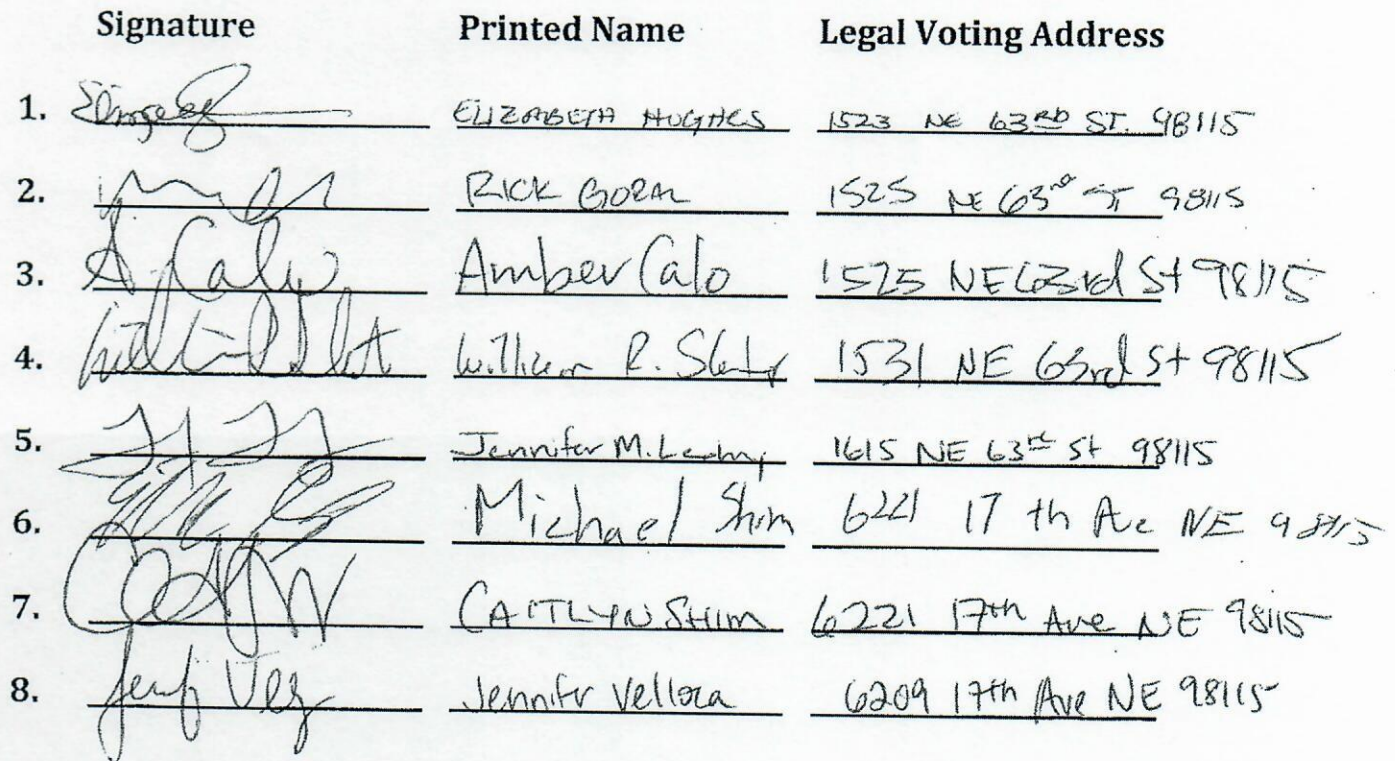 Signature Printed Name Legal Voting Address
1. ELIZABETH HUGHES 1523 NE 63RD ST. 98115
2. RICK GORAL 1525 NE 63rd ST 98115
3. A. Calo Amber Calo 1525 NE 63rd St 98115
4. William R. 1531 NE 63rd St 98115
5. Jennifer M. 1615 NE 63rd St 98115
6. Michael Shim 6221 17 th Ave NE 98115
7. CAITLYN SHIM 6221 17th Ave NE 98115
8. Jennifr Vellora 6209 17th Ave NE 98115